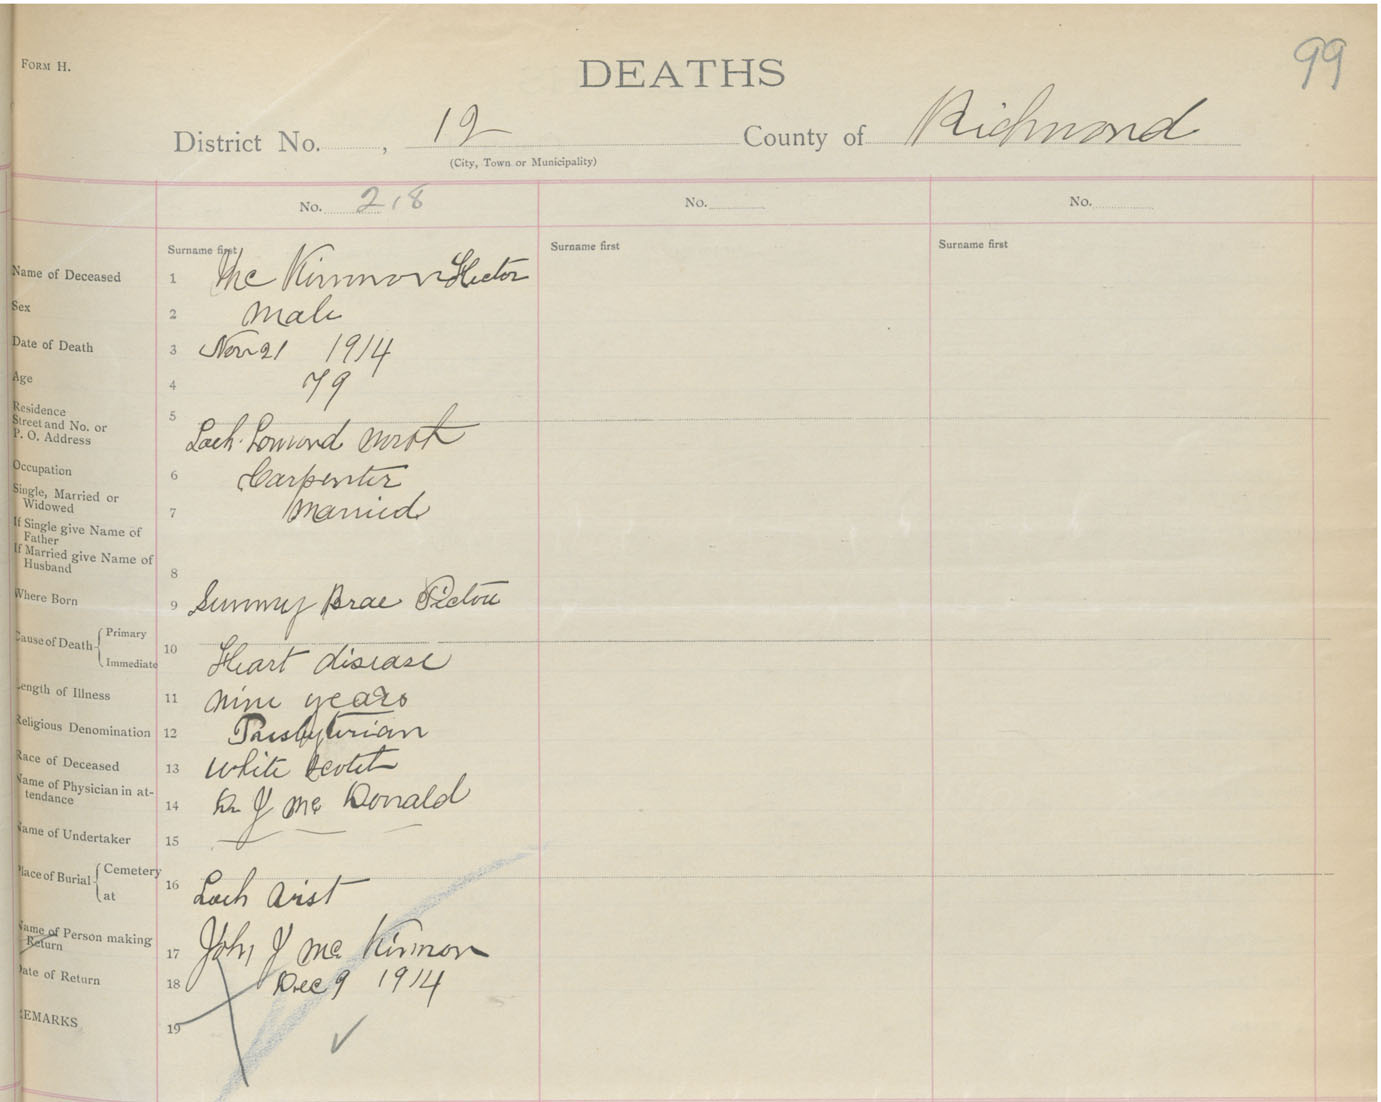 FORM H.
DEATHS
99
District No. , 12 County of Richmond
(City, Town or Municipality)
No. 218 No. No.
Surname first Surname first Surname first
Name of Deceased 1 Mc Kinnon Hector
Sex 2 Male
Date of Death 3 Nov 21 1914
Age 4 79
Residence 5
Street and No. or
P. O. Address Loch Lomond North
Occupation 6 Carpenter
Single, Married or
Widowed 7 Married
If Single give Name of
Father
If Married give Name of
Husband 8
Where Born 9 Sunny Brae Pictou
Cause of Death Primary 10
Immediate Heart disease
Length of Illness 11 nine years
Religious Denomination 12 Presbyterian
Race of Deceased 13 White Scotch
Name of Physician in at-
tendance 14 Dr J Mc Donald
Name of Undertaker 15
Place of Burial Cemetery 16
at Loch Uist
Name of Person making
Return 17 John J Mc Kinnon
Date of Return 18 Dec 9 1914
REMARKS 19